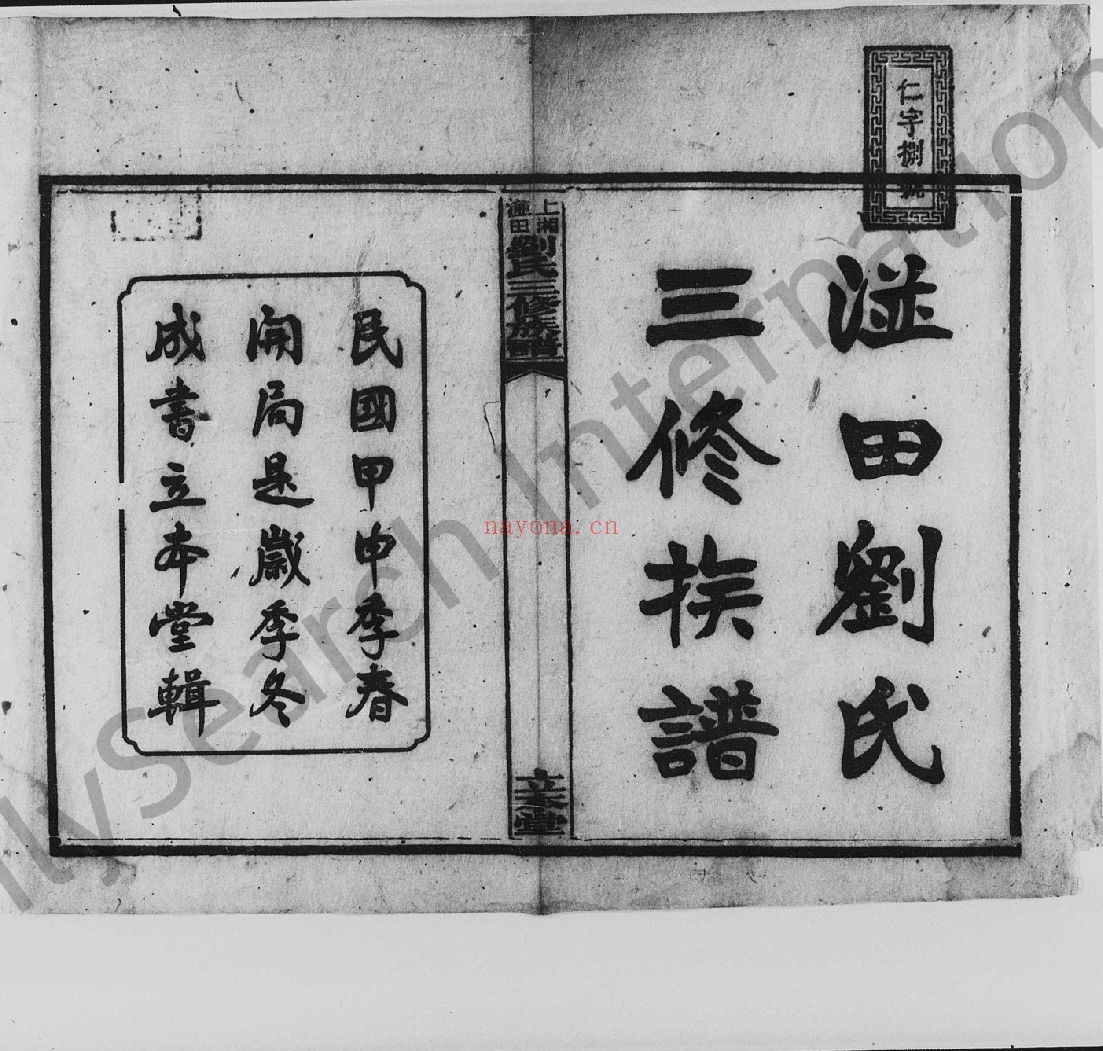 仁字捌號
湴田劉氏
三修族譜
上湘
湴田
劉氏三修族譜
立本堂
民國甲申季春
開局是歲季冬
成書立本堂輯
nayona.cn
ilySearch Internation